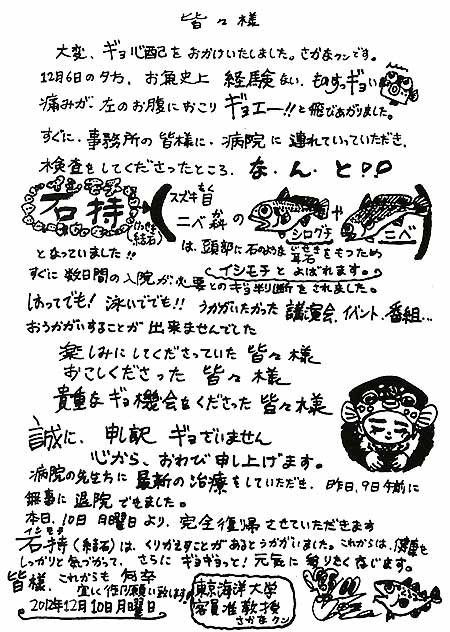 皆々様
大変、ギョ心配をおかけいたしました。さかなクンです。
12月6日の夕ね、お魚史上 経験ない、ものすっギョい
痛みが左のお腹におこり ギョエー!!と飛びあがりました。
すぐに・事務所の皆様に・病院に連れていっていただき、
検査をしてくださったところ、な・ん・と??
石持
けっせき
(結石)
スズキ目
もく
ニベ科の
か
シログチ
や
ニベ
は、頭部に石のような耳石をもつため
じせき
イシモチとよばれます。
となっていました!!
すぐに数日間の入院が必要とのギョ判断をされました。
はってでも!泳いででも!!うかがいたかった 講演会、イベント、番組...
おうかがいすることが出来ませんでした
楽しみにしてくださっていた 皆々様
おこしくださった 皆々様
貴重なギョ機会をくださった 皆々様
誠に、申し訳 ギョざいません
心から、おわび申し上げます。
病院の先生方に最新の治療をしていただき、昨日、9日午前に
無事に退院できました。
本日、10日 日曜日より、完全復帰させていただきます
イシモチ
石持(結石)は、くりかえすことがあるとうかがいました。これからは、健康を
しっかりと気づかって、さらにギョギョっと!元気に参りたくなじます。
皆様、これからも 何卒
宜しく御願い致します
2012年12月10日月曜日
東京海洋大学
客員准教授
さかなクン